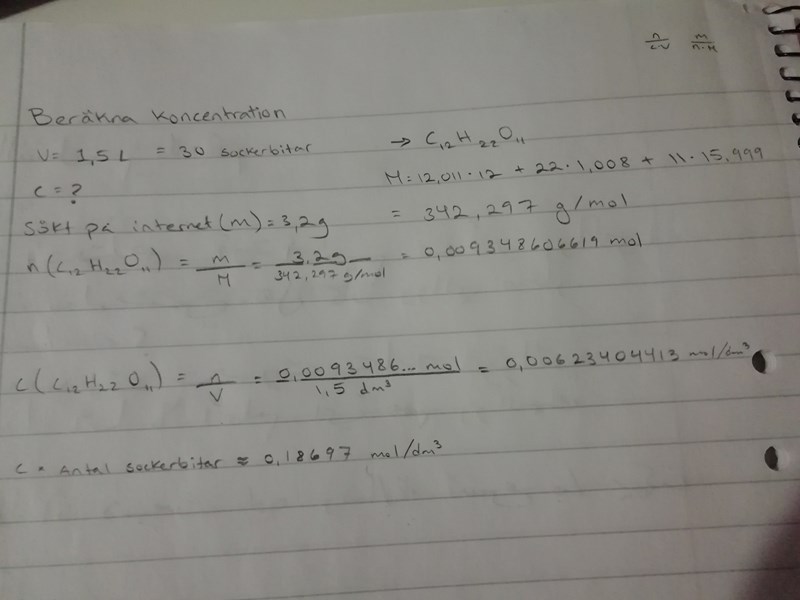 n/cV m/n·M
Beräkna koncentration
V = 1,5 L = 30 sockerbitar → C₁₂H₂₂O₁₁
c = ? M = 12,011·12 + 22·1,008 + 11·15,999
Sökt på internet (m) = 3,2g = 342,297 g/mol
n(C₁₂H₂₂O₁₁) = m/M = 3,2g/342,297 g/mol = 0,009348606619 mol
c(C₁₂H₂₂O₁₁) = n/V = 0,0093486... mol/1,5 dm³ = 0,00623404413 mol/dm³
c · Antal sockerbitar ≈ 0,18697 mol/dm³